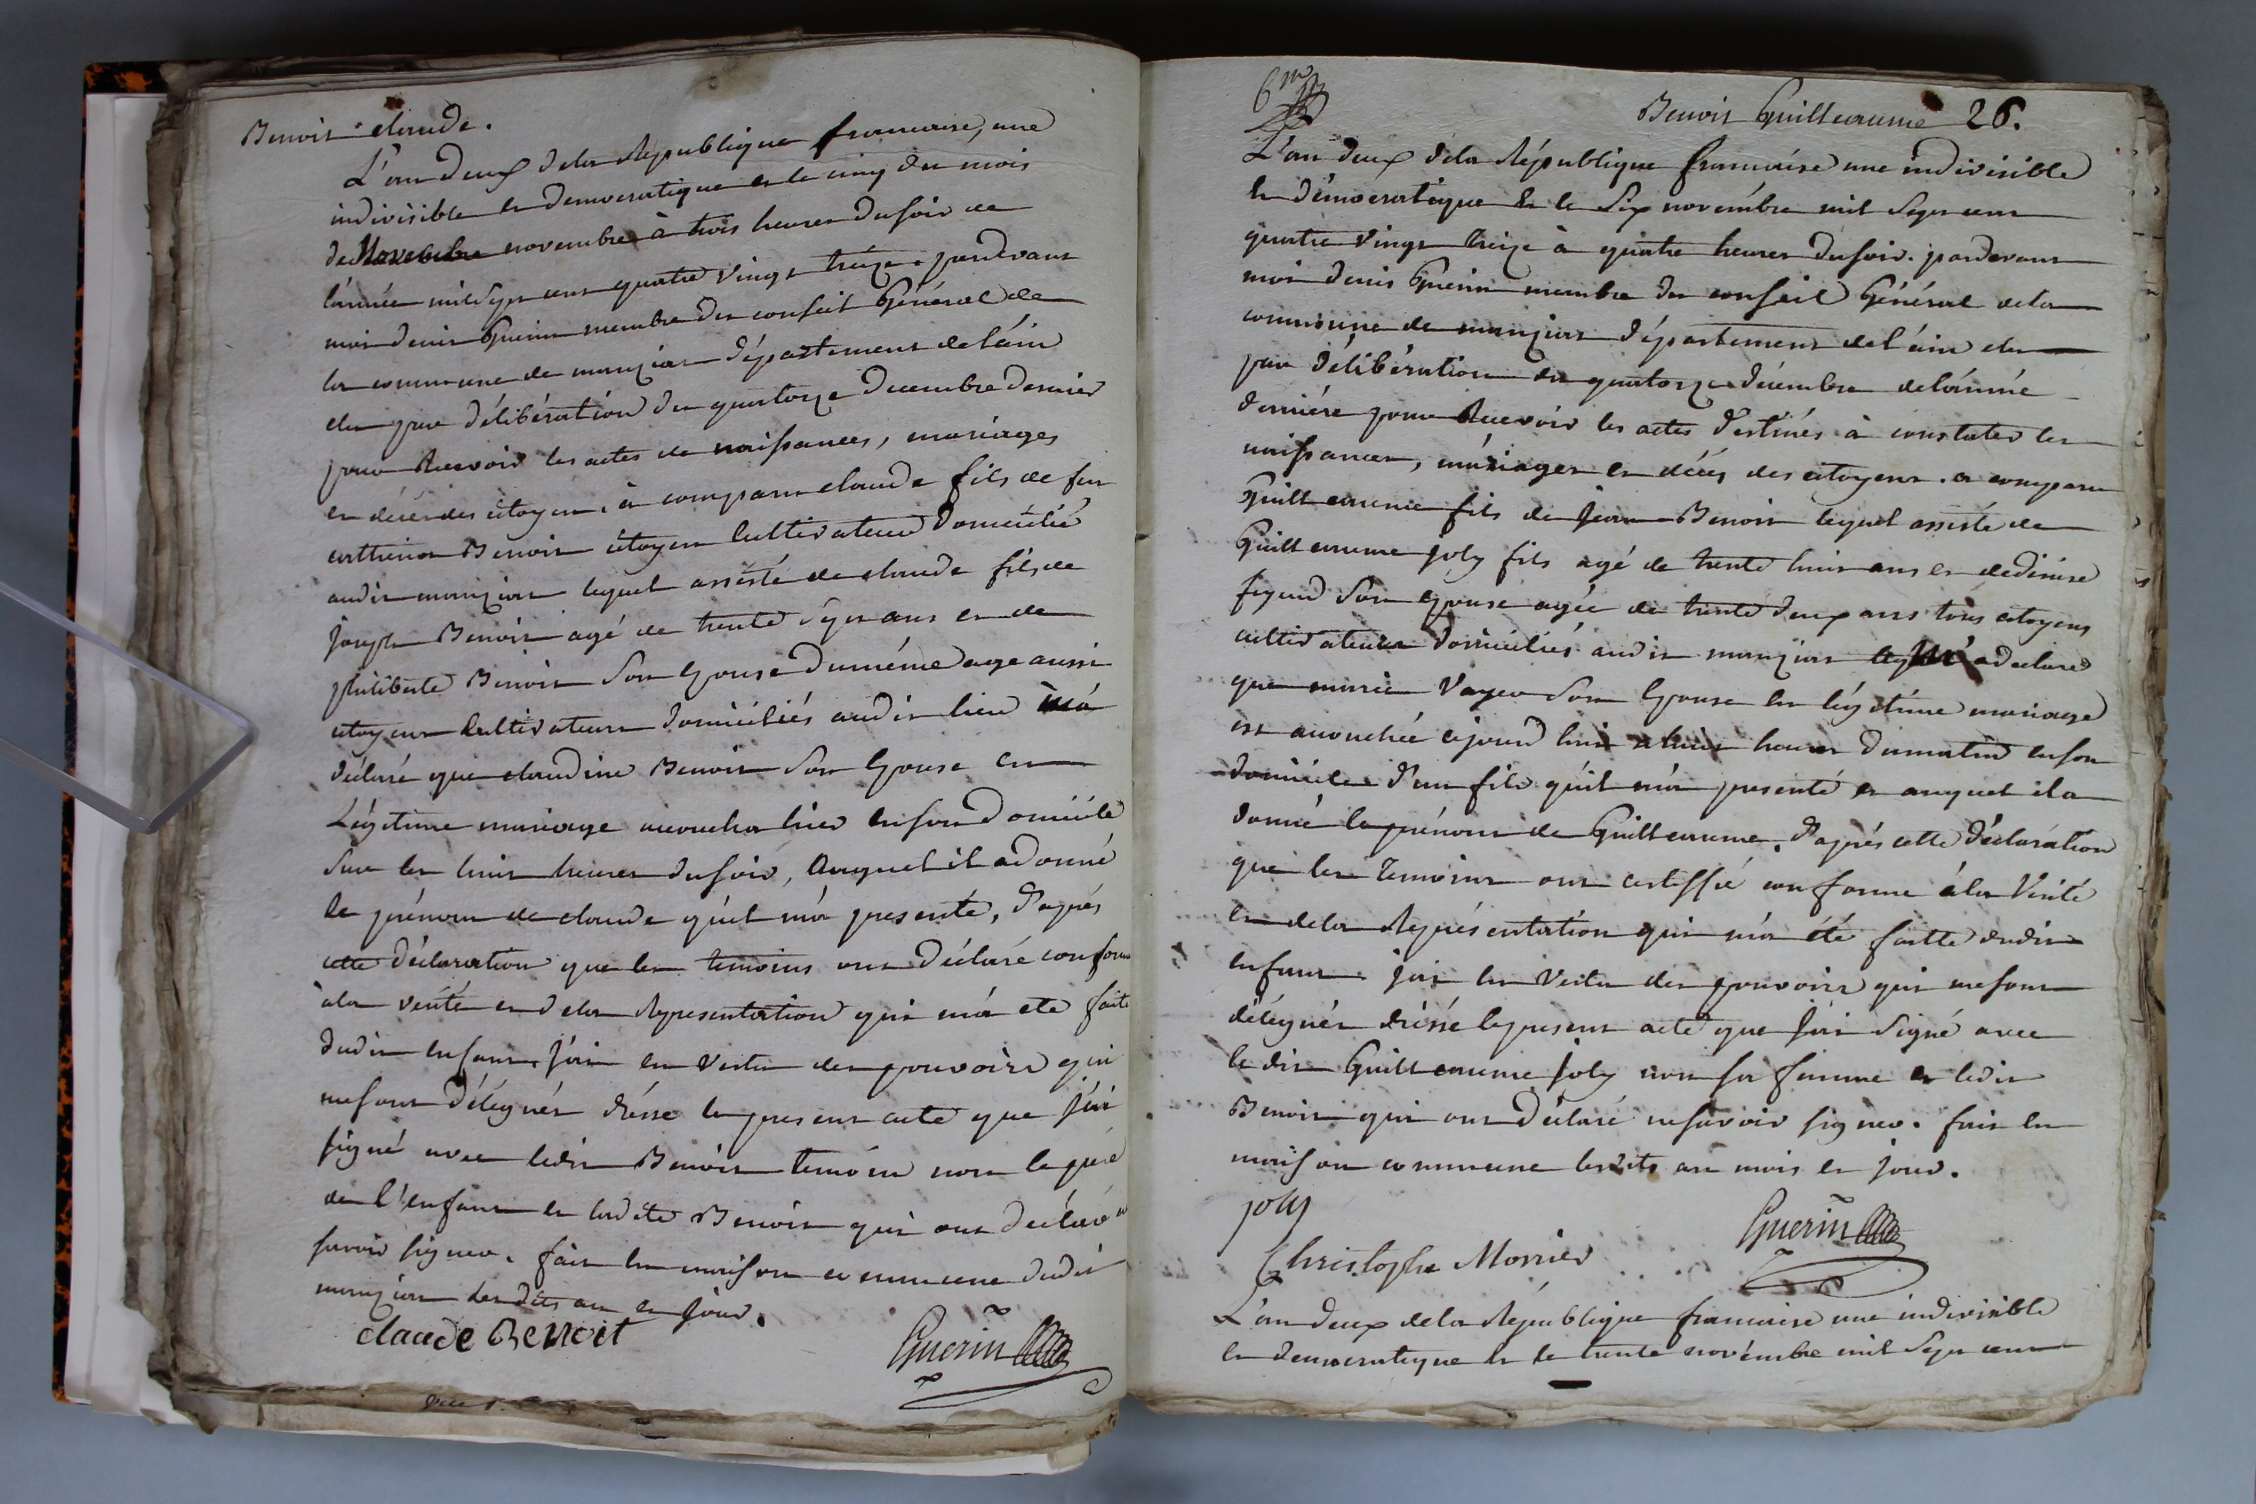 Benoit claude.
L'an deux dela République francaise, une
indivisible et democratique et le cinq du mois
de novembre à trois heures du soir de
l'année mil sept cent quatre vingt treize. pardevant
moi denis Guerin membre du conseil Général de
la commune de manziat département de l'ain
elu par délibération du quatorze decembre dernier
pour Recevoir les actes de naissances, mariages
et décès des citoyens, à comparu claude fils de feu
Benoit citoyen Cultivateur domicilié
audit manziat lequel assisté de claude fils de
joseph Benoit agé de trente sept ans et de
philiberte Benoit son Epouse du méme age aussi
citoyens Cultivateurs domiciliés audit lieu m'a
déclaré que claudine Benoit son Epouse en
Légitime mariage accoucha hier en son domicile
sur les huit heures du soir, Auquel il a donné
le prénom de claude qu'il m'a presenté, D'après
cette déclaration que les temoins ont déclaré conforme
à la vérité et dela Representation qui m'a eté faite
dudit enfant, j'ai en vertu des pouvoirs qui
me sont délégués dréssé le present acte que j'ai
signé avec ledit Benoit temoin non le pére
de l'enfant et ladite Benoit qui ont déclaré ne
savoir signer. fait en maison commune dudit
manziat les dits an et jour.
claude Benoit
Guerin
6m
Benoit Guillaume 26.
L'an deux dela République francaise une indivisible
et démocratique et le Six novémbre mil Sept cent
quatre vingt treize à quatre heures du soir. pardevant
moi denis Guerin membre du conseil Général dela
commune de manziat département de l'ain elu
par délibération du quatorze décembre de l'année
derniére pour Recevoir les actes destinés à constater les
naissances, mariages et décès des citoyens. a comparu
Guillaume fils de jean Benoit lequel assisté de
Guillaume joly fils agé de trente huit ans et de
son Epouse agée de trente deux ans tous citoyens
cultivateurs domiciliés audit manziat a declaré
que marie Vayeu son Epouse en légitime mariage
est accouchée ejourd'hui à huit heures du matin en son
domicile d'un fils qu'il m'a presenté et auquel il a
donné le prénom de Guillaume. D'aprés cette déclaration
que les temoins ont certiffié conforme à la Vérité
et dela Représentation qui m'a été faitte dudit
enfant j'ai en Vertu des pouvoirs qui me sont
délégués dréssé le present acte que j'ai signé avec
le dit Guillaume joly non sa femme et ledit
Benoit qui ont déclaré ne savoir signer. fait en
maison commune lesdits an mois et jour.
joly
Guerin
Christophe Monier
L'an deux dela République francaise une indivisible
et democratique et le trente novémbre mil Sept cent